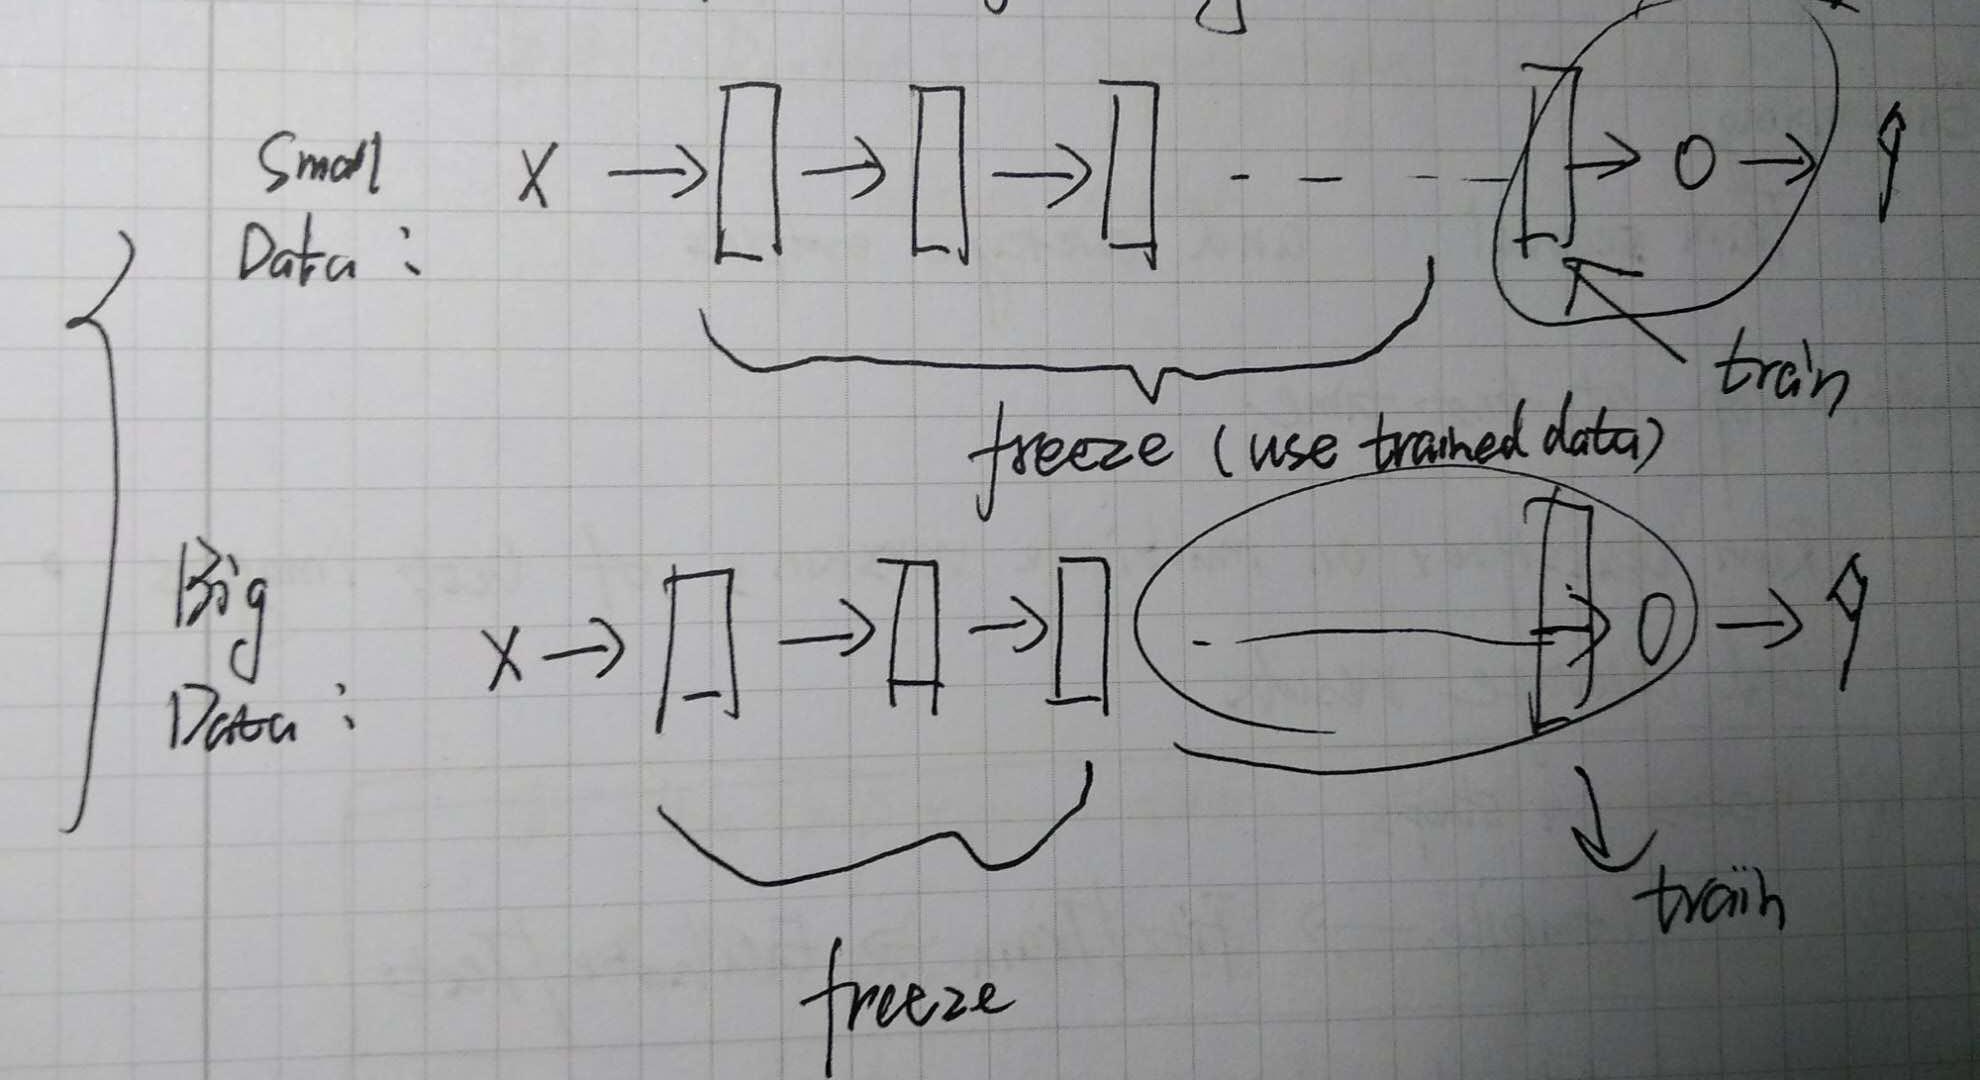 Small
Data :
X → → → - - - - → O → ŷ
train
freeze (use trained data)
Big
Data :
X → → → - → O → ŷ
train
freeze